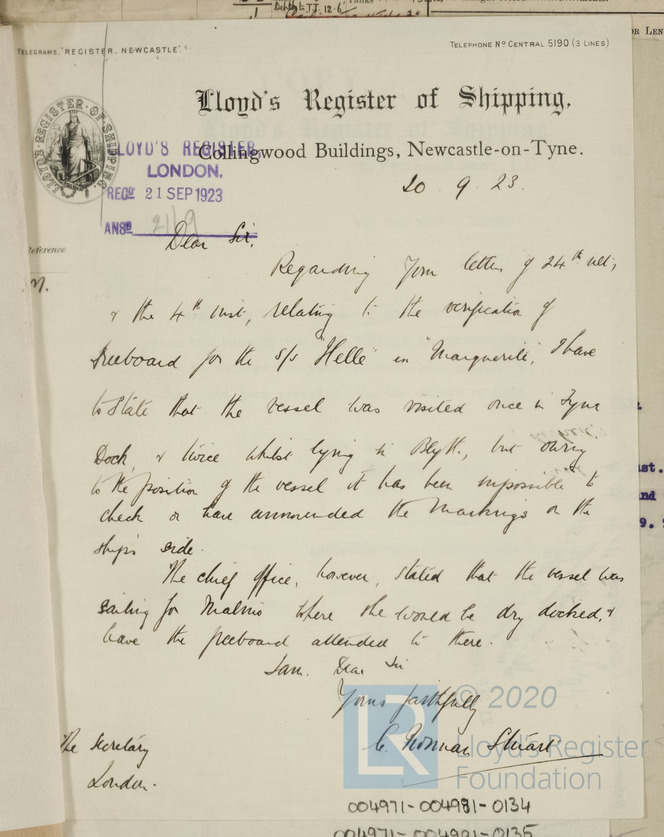 TELEGRAMS, "REGISTER, NEWCASTLE".
TELEPHONE Nº CENTRAL 5190 (3 LINES)
Lloyd's Register of Shipping,
LLOYD'S REGISTER OF SHIPPING
Collingwood Buildings, Newcastle-on-Tyne.
LLOYD'S REGISTER,
LONDON.
RECD 21 SEP 1923
ANSD 21/9
20 9. 23.
Dear Sir,
Regarding your letters of 24th ult,
& the 4th inst, relating to the verification of
freeboard for the s/s "Helle" ex "Marguerite", I have
to state that the vessel was visited once in Tyne
Dock, & twice whilst lying in Blyth, but owing
to the position of the vessel it has been impossible to
check or have ammended the markings on the
ship's side.
The chief officer, however, stated that the vessel was
sailing for Malmo where she would be dry docked, &
have the freeboard attended to there.
I am, Dear Sir
Yours faithfully
C. Norman Stuart
The Secretary
London.
© 2020
LR
Lloyd's Register
Foundation
004971-004981-0134
004971-004981-0135